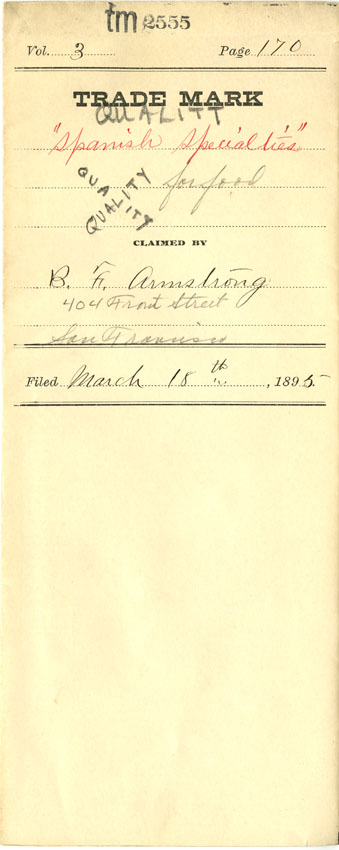 tm 2555
Vol. 3 Page 170
TRADE MARK
QUALITY
"Spanish Specialties"
QUALITY
for food
QUALITY
CLAIMED BY
B. F. Armstrong
404 Front Street
San Francisco
Filed March 18th, 1895